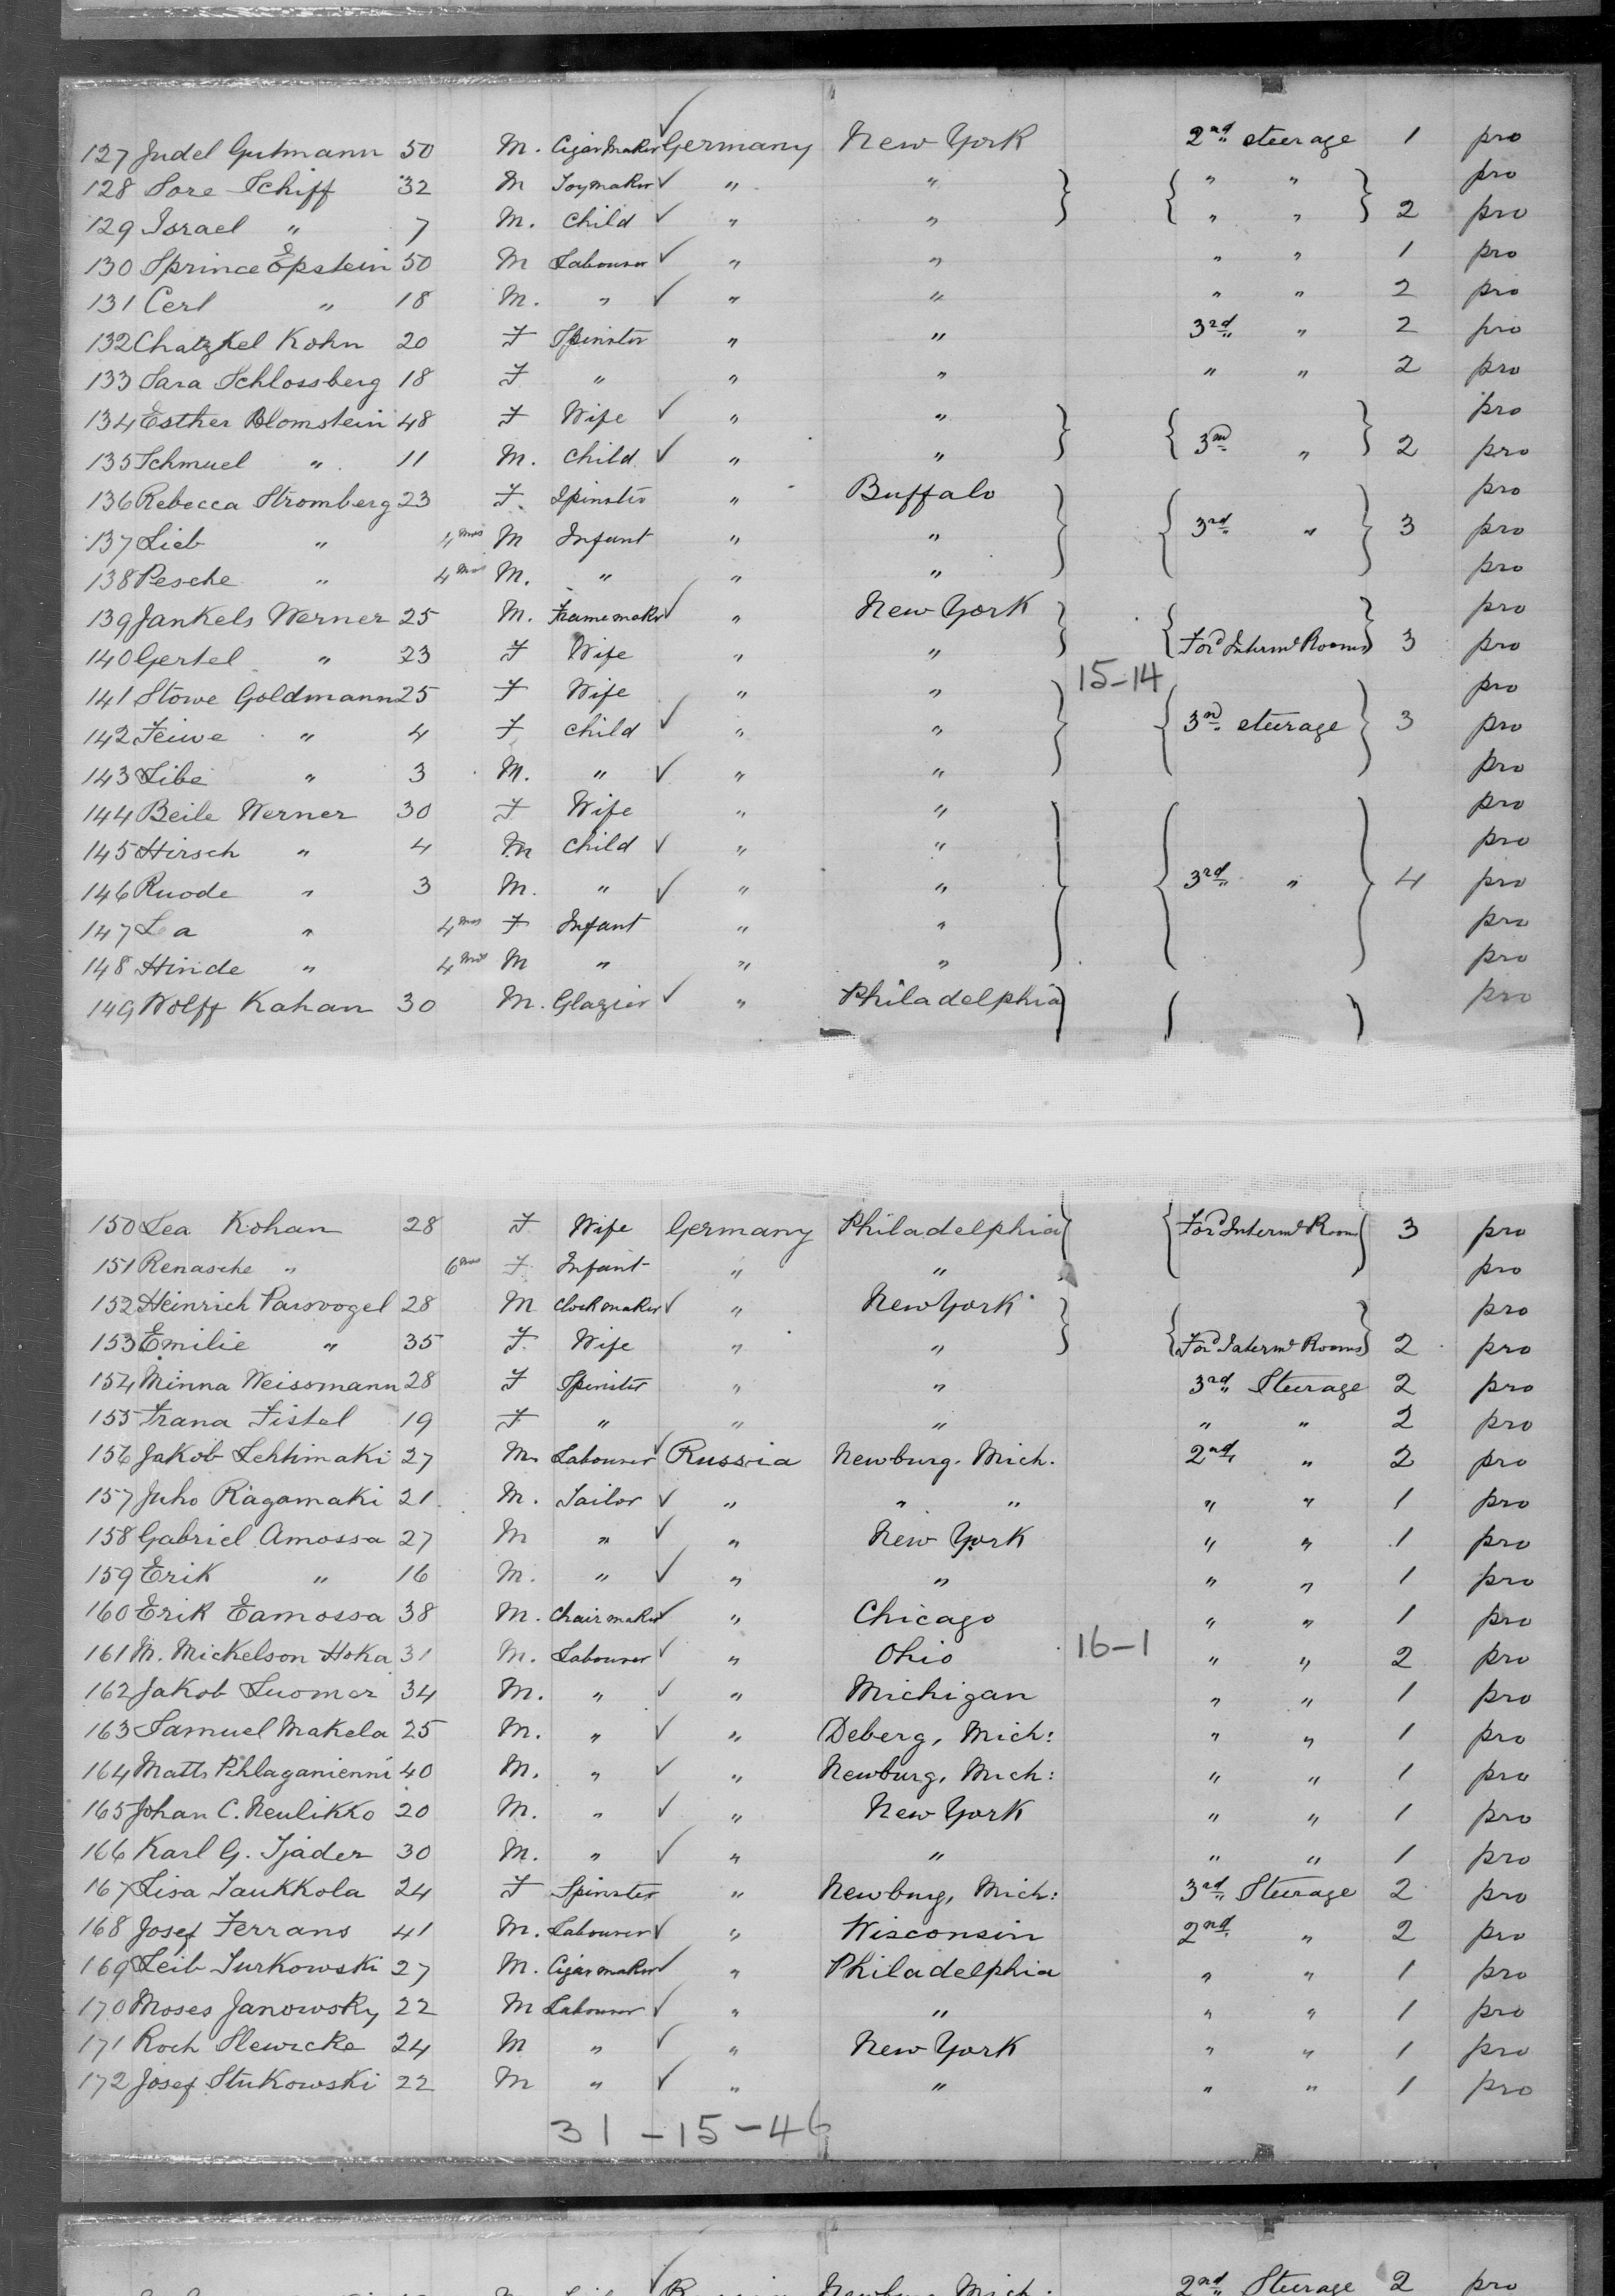 127 Judel Gutmann 50 M. Cigar Maker ✓ Germany New York 2nd steerage 1 pro
128 Sore Schiff 32 M Toymaker ✓ " " { " " } pro
129 Israel " 7 M. Child ✓ " " } { " " } 2 pro
130 Sprince Epstein 50 M Labourer ✓ " " " " 1 pro
131 Cerl " 18 M. " ✓ " " " " 2 pro
132 Chatzkel Kohn 20 F Spinster " " 3rd " 2 pro
133 Sara Schlossberg 18 F " " " " " 2 pro
134 Esther Blomstein 48 F Wife ✓ " " pro
135 Schmuel " 11 M. Child ✓ " " } { 3rd " } 2 pro
136 Rebecca Stromberg 23 F. Spinster " Buffalo pro
137 Lieb " 4 mos M Infant " " } { 3rd " } 3 pro
138 Pesche " 4 mos M. " " " pro
139 Jankels Werner 25 M. Framemaker ✓ " New York pro
140 Gertel " 23 F Wife " " } { For'd Interm. Rooms } 3 pro
15-14
141 Stowe Goldmann 25 F Wife " " pro
142 Feiwe " 4 F Child ✓ " " } { 3rd steerage } 3 pro
143 Libe " 3 M. " ✓ " " pro
144 Beile Werner 30 F Wife " " pro
145 Hirsch " 4 M Child ✓ " " pro
146 Ruode " 3 M. " ✓ " " } { 3rd " } 4 pro
147 Lea " 4 mos F Infant " " pro
148 Hinde " 4 mos M " " " pro
149 Wolff Kahan 30 M. Glazier ✓ " Philadelphia pro
150 Lea Kohan 28 F Wife Germany Philadelphia } { For'd Interm. Room } 3 pro
151 Renasche " 6 mos F. Infant " " pro
152 Heinrich Parsvogel 28 M Clockmaker ✓ " New York pro
153 Emilie " 35 F. Wife " " } { For'd Interm. Rooms } 2 pro
154 Minna Weissmann 28 F Spinster " " 3rd Steerage 2 pro
155 Frana Fistel 19 F " " " " " 2 pro
156 Jakob Lehtimaki 27 M. Labourer ✓ Russia Newburg. Mich. 2nd " 2 pro
157 Juho Ragamaki 21 M. Tailor ✓ " " " " " 1 pro
158 Gabriel Amossa 27 M " ✓ " New York " " 1 pro
159 Erik " 16 M. " ✓ " " " " 1 pro
160 Erik Eamossa 38 M. Chairmaker ✓ " Chicago " " 1 pro
161 M. Mickelson Hoka 31 M. Labourer ✓ " Ohio 16-1 " " 2 pro
162 Jakob Luomar 34 M. " ✓ " Michigan " " 1 pro
163 Samuel Makela 25 M. " ✓ " Deberg, Mich: " " 1 pro
164 Matts Pihlaganienni 40 M. " ✓ " Newburg, Mich: " " 1 pro
165 Johan C. Neulikko 20 M. " ✓ " New York " " 1 pro
166 Karl G. Tjader 30 M. " ✓ " " " " 1 pro
167 Lisa Taukkola 24 F Spinster " Newburg, Mich: 3rd Steerage 2 pro
168 Josef Ferrans 41 M. Labourer ✓ " Wisconsin 2nd " 2 pro
169 Leib Turkowski 27 M. Cigarmaker ✓ " Philadelphia " " 1 pro
170 Moses Janowsky 22 M Labourer ✓ " " " " 1 pro
171 Roch Slewicke 24 M " ✓ " New York " " 1 pro
172 Josef Stukowski 22 M " ✓ " " " " 1 pro
31-15-46
2nd Steerage 2 pro